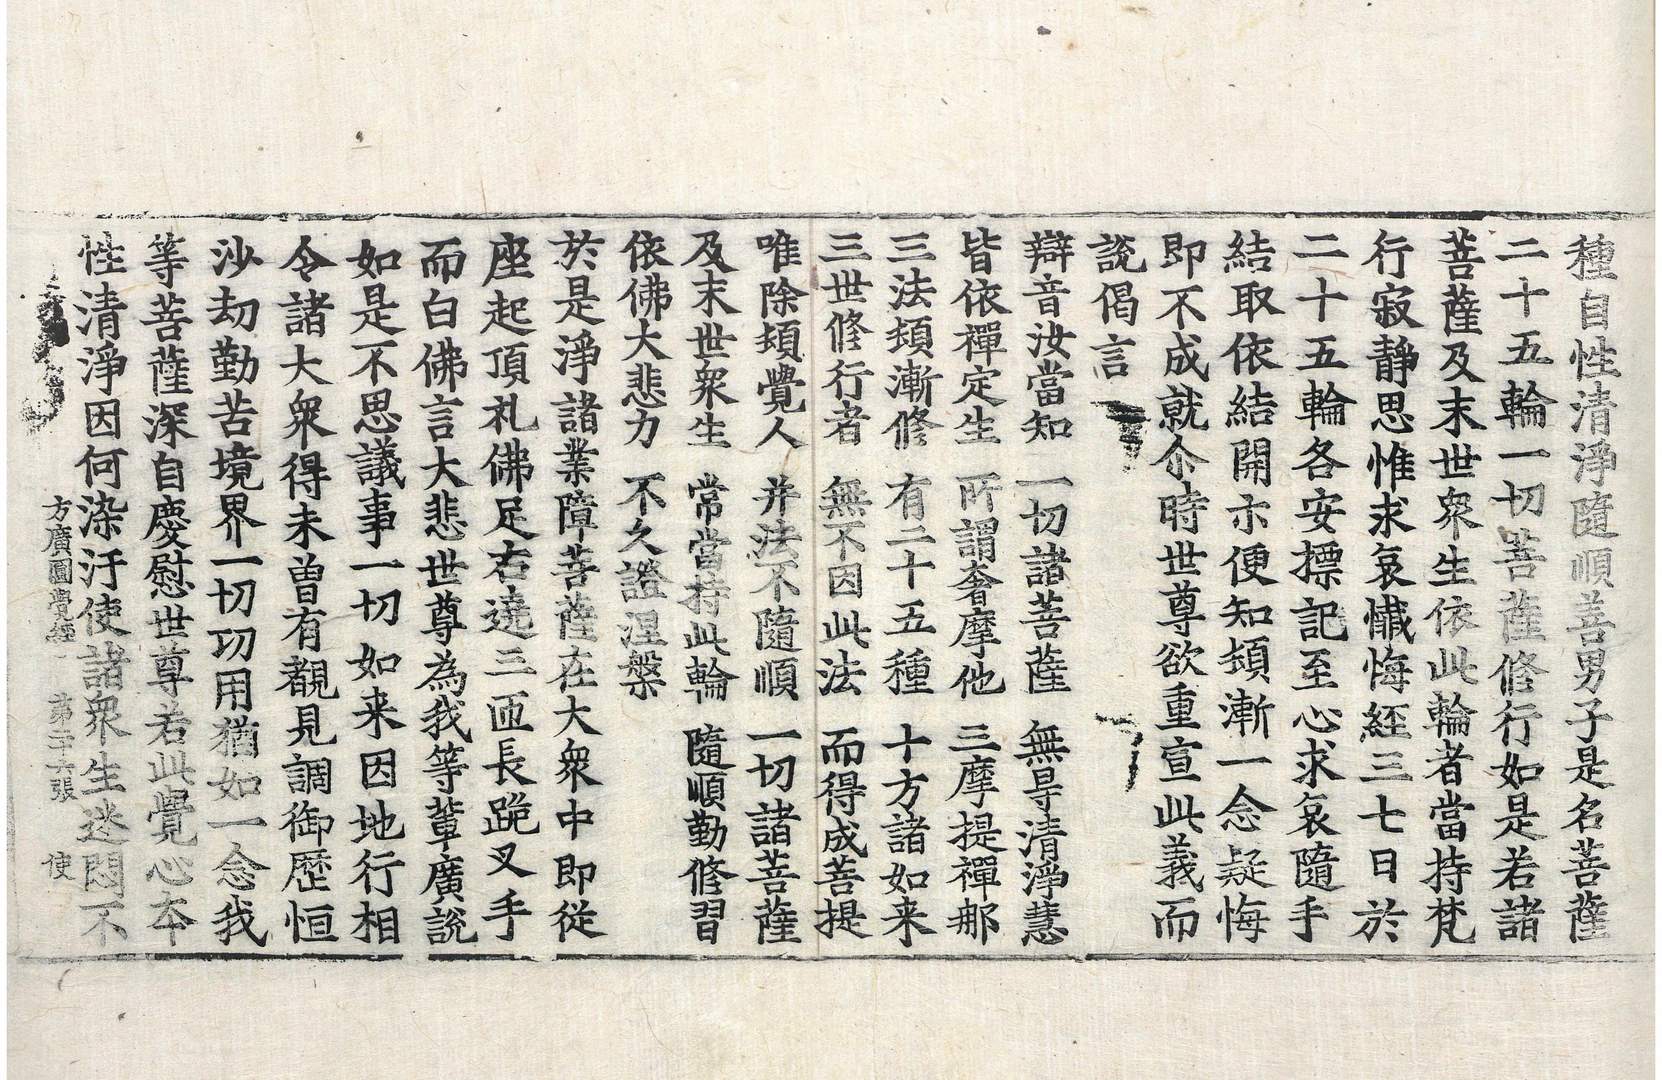 種自性清淨隨順善男子是名菩薩
二十五輪一切菩薩修行如是若諸
菩薩及末世衆生依此輪者當持梵
行寂靜思惟求哀懺悔経三七日於
二十五輪各安摽記至心求哀隨手
結取依結開示便知頓漸一念疑悔
即不成就尒時世尊欲重宣此義而
說偈言
辯音汝當知 一切諸菩薩 無㝵清淨慧
皆依禪定生 所謂奢摩他 三摩提禪那
三法頓漸修 有二十五種 十方諸如来
三世修行者 無不因此法 而得成菩提
唯除頓覺人 并法不隨順 一切諸菩薩
及末世衆生 常當持此輪 隨順勤修習
依佛大悲力 不久證涅槃
於是淨諸業障菩薩在大衆中即從
座起頂礼佛足右遶三匝長跪叉手
而白佛言大悲世尊為我等輩廣說
如是不思議事一切如来因地行相
令諸大衆得未曽有覩見調御歷恒
沙劫勤苦境界一切功用猶如一念我
等菩薩深自慶慰世尊若此覺心本
性清淨因何染汙使諸衆生迷悶不
方廣圓覺經 第二十六張 使